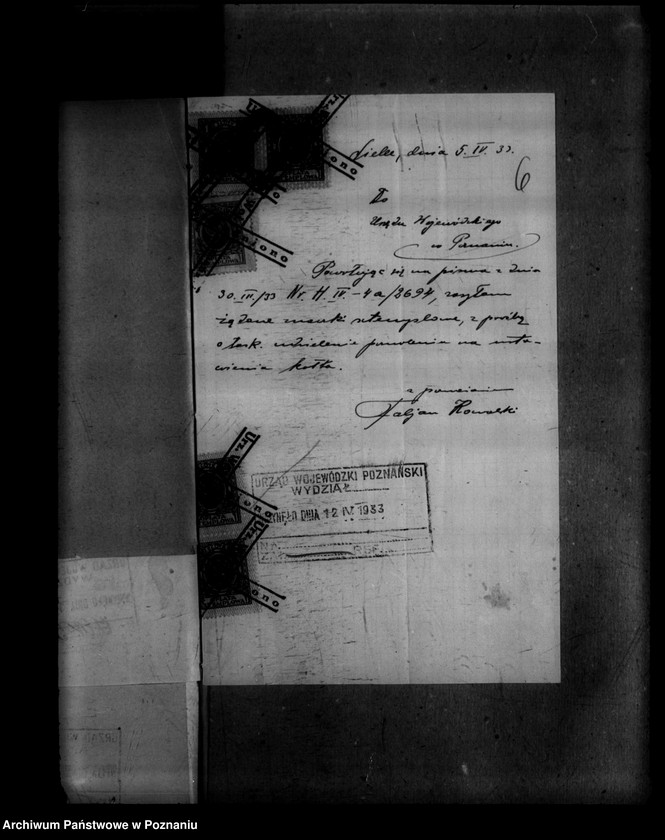 dnia 5. IV. 33.
6
Do
Urzędu Wojewódzkiego
w Poznaniu.
Powołując się na pismo z dnia
30. III./33 Nr. H. IV. - 4a/2694,
żądane znaczki stemplowe, z prośbą
o łask. udzielenie pozwolenia na usta-
wienie kotła.
Fabjan Kowalski
URZĄD WOJEWÓDZKI POZNAŃSKI
WYDZIAŁ
DNIA 12 IV 1933
Archiwum Państwowe w Poznaniu